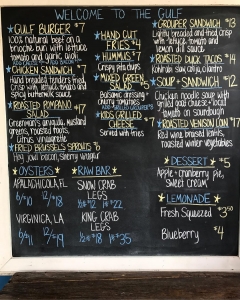 WELCOME TO THE GULF
GULF BURGER $7
100% natural beef on a
brioche bun with lettuce
tomato and garlic aioli
CHICKEN SANDWICH $7
Hand breaded tenders, fried
crisp with lettuce tomato and
spicy buttermilk sauce
ROASTED POMPANO $7
SALAD
greens, roasted fruits,
citrus vinaigrette
FRIED BRUSSELS SPROUTS $6
OYSTERS
APALACHICOLA, FL
6/$10 12/$18
VIRGINICA, LA
6/$11 12/$19
HAND CUT $4
FRIES
HUMMUS $7
Crispy pita chips
MIXED GREEN $5
SALAD
Balsamic dressing
cherry tomatoes
KIDS GRILLED $7
CHEESE
Served with fries
RAW BAR
SNOW CRAB
LEGS
1/2# $12 1# $22
KING CRAB
LEGS
1/2# $18 1# $35
GROUPER SANDWICH $13
Hand breaded and fried
crisp with lettuce, tomato and
lemon dill sauce
ROASTED DUCK TACOS $14
SOUP + SANDWICH $12
Chicken noodle soup with
grilled goat cheese + local
tomato on sourdough
ROASTED VENISON LOIN $17
Red wine braised lentils,
roasted winter vegetables
DESSERT $5
Apple + cranberry pie,
sweet cream
LEMONADE
Fresh Squeezed $3.50
Blueberry $4